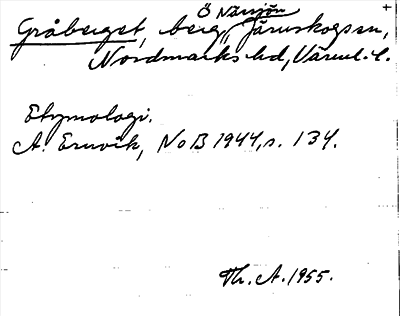 Ö Närsjön +
Gråberget, berg, Järnskogs sn,
Nordmarks hd, Värml. l.
Etymologi.
A. Ernvik, NoB 1944, s. 134.
Th. A. 1955.